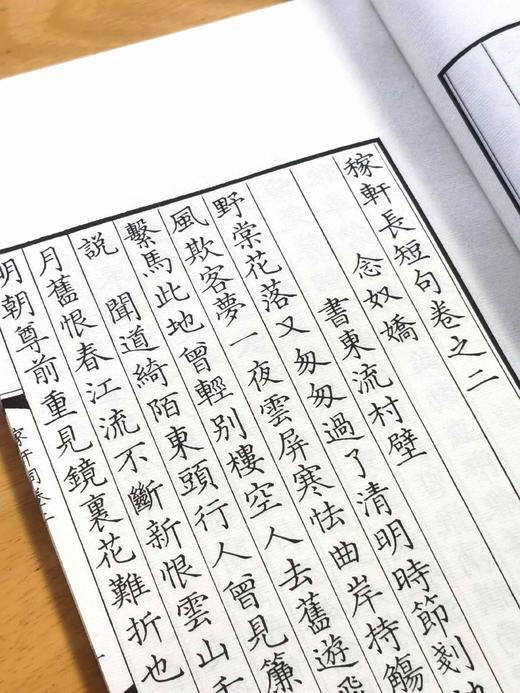 稼軒長短句卷之二
念奴嬌
書東流村壁
野棠花落又匆匆過了清明時節剗
風欺客夢一夜雲屏寒怯曲岸持觴
繫馬此地曾輕別樓空人去舊遊飛
説　聞道綺陌東頭行人曾見簾
月舊恨春江流不斷新恨雲山千
明朝尊前重見鏡裏花難折也